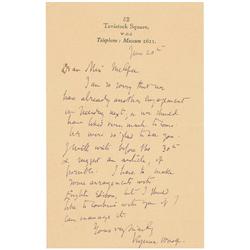 52
Tavistock Square,
W.C.1
Telephone: Museum 2621.
June 20th
Dear Miss
I am so sorry that we
have already another engagement
on Tuesday next, as we should
have liked very much to come.
We were so glad to see you.
I will write before the 30th
& suggest an article, if
possible. I have to make
some arrangements with
but I should
like to continue with you if I
can manage it.
Yours very sincerely
Virginia Woolf